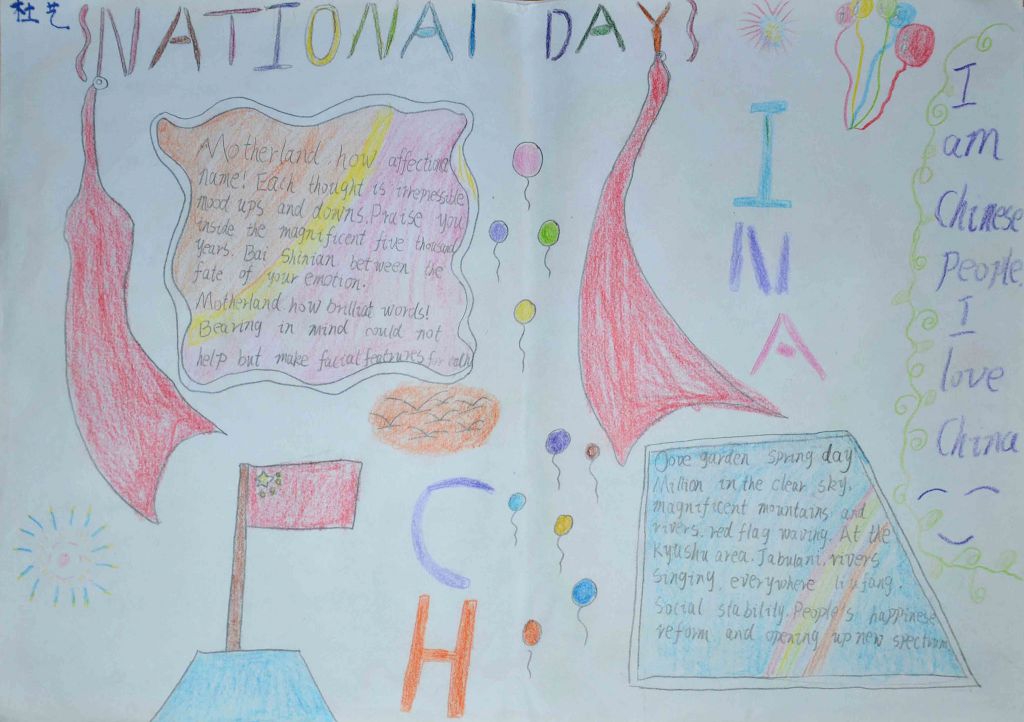 杜艺
NATIONAL DAY
Motherland, how affectional
name! Each thought is irrepressible
mood ups and downs. Praise you
inside the magnificent five thousand
years. Bai Shinian between the
fate of your emotion.
Motherland, how brilliat words!
Bearing in mind could not
help but make facial features for each
CH
INA
Love garden spring day
Million in the clear sky.
magnificent mountains and
rivers. red flag waving. At the
Kyushu area. Jabulani. rivers
singing. everywhere liujang.
Social stability. People's happinese
reform and opening up new spectrum
I
am
Chinese
people.
I
love
China